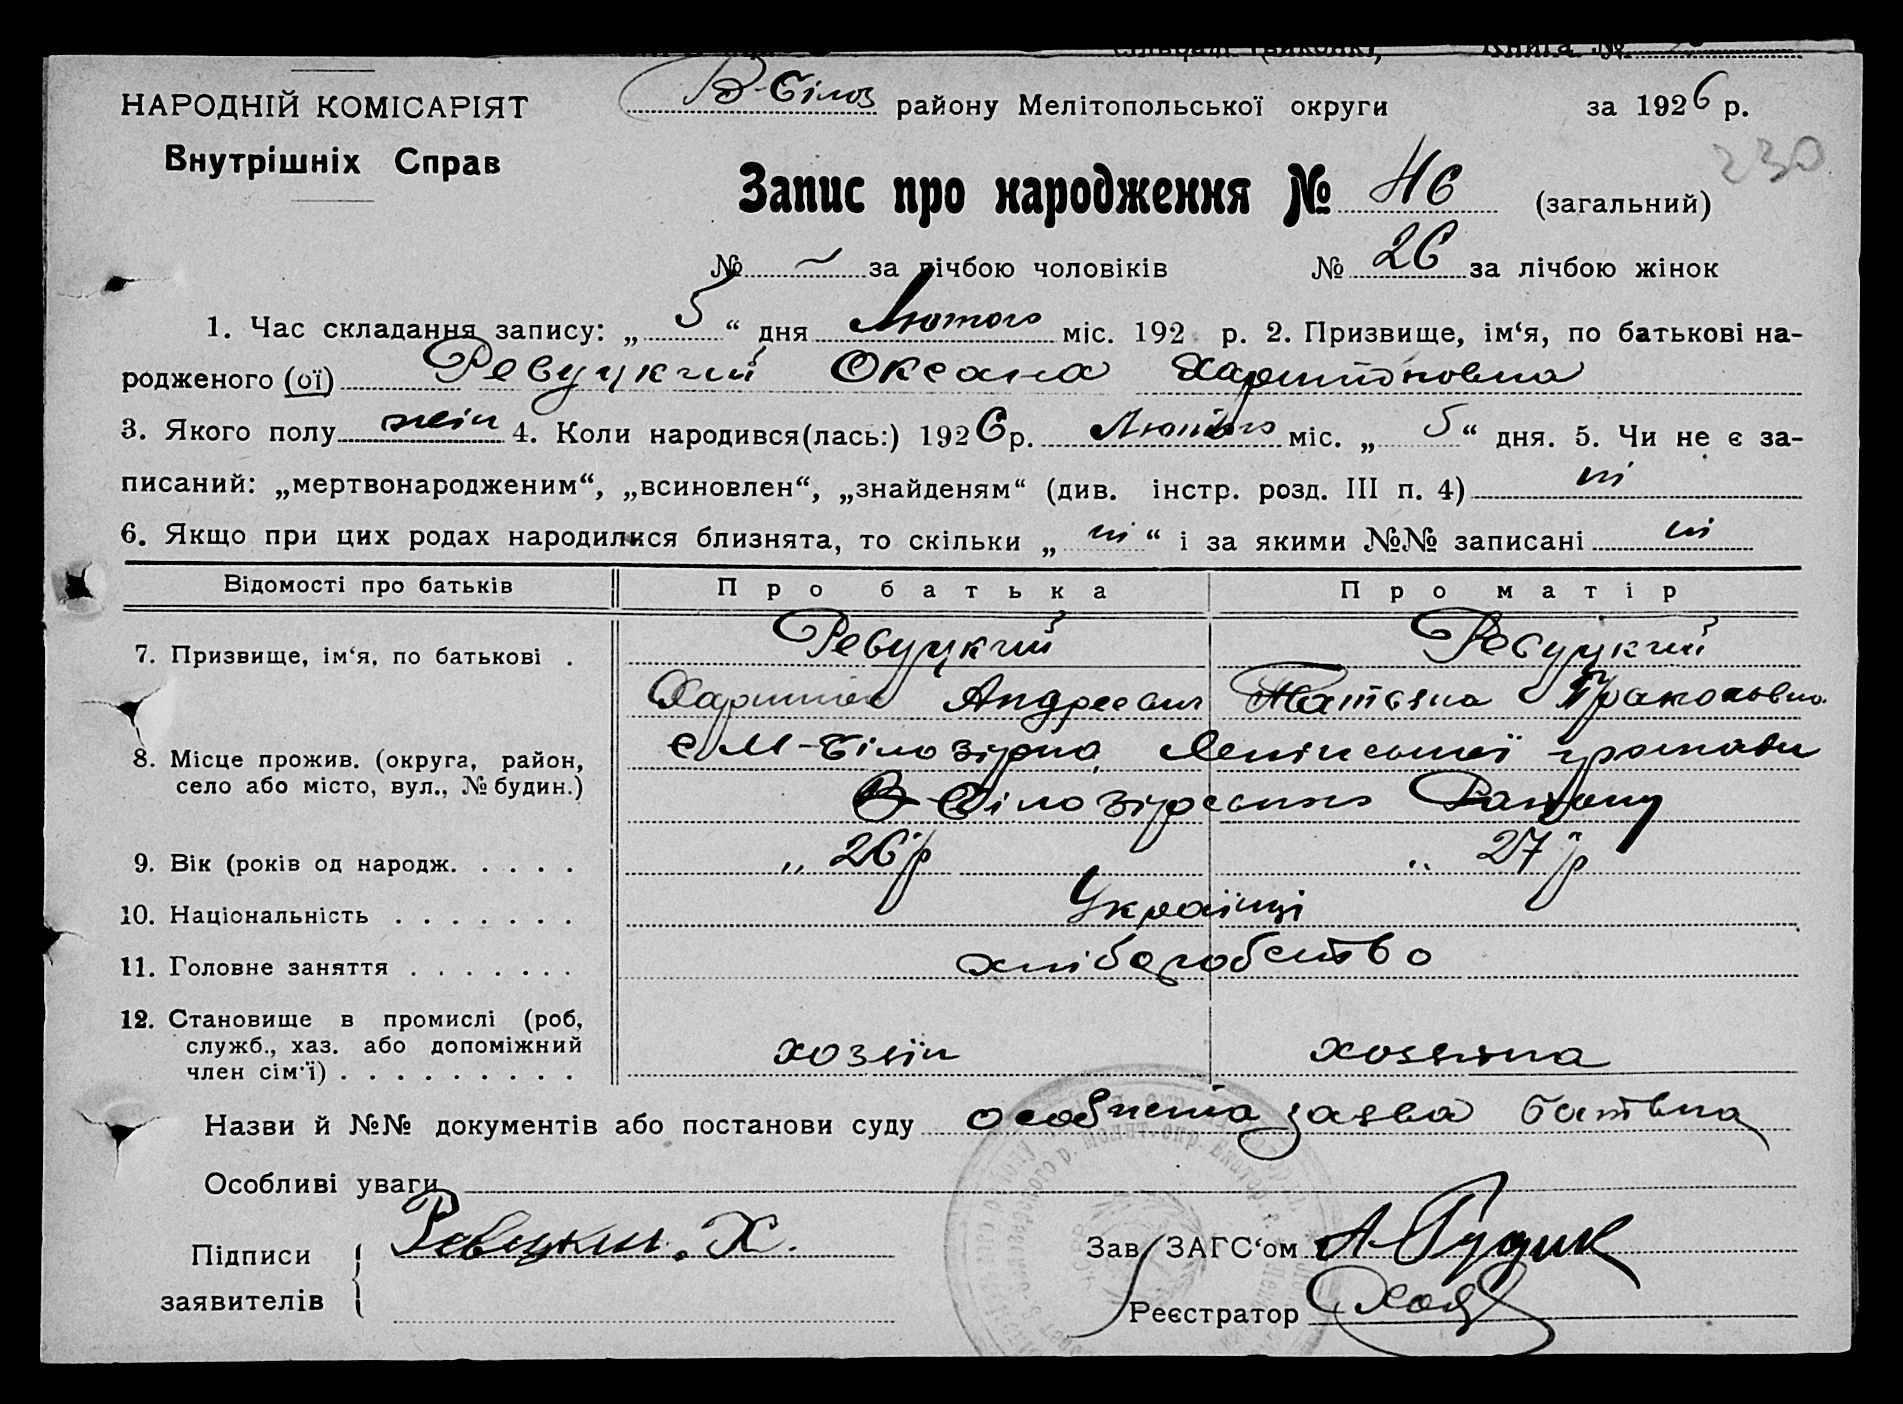 Книга №
НАРОДНІЙ КОМІСАРІЯТ
Внутрішніх Справ
В-Білоз району Мелітопольської округи за 1926 р.
230
Запис про народження № 46 (загальний)
№ – за лічбою чоловіків № 26 за лічбою жінок
1. Час складання запису: „5“ дня Лютого міс. 192 р. 2. Призвище, ім‘я, по батькові на-
родженого (ої) Ревуцкий Оксана Харитоновна
3. Якого полу жін 4. Коли народився(лась:) 1926 р. Лютого міс. „5“ дня. 5. Чи не є за-
писаний: „мертвонародженим“, „всиновлен“, „знайденям“ (див. інстр. розд. III п. 4) ні
6. Якщо при цих родах народилися близнята, то скільки „ні“ і за якими №№ записані ні
Відомості про батьків Про батька Про матір
7. Призвище, ім‘я, по батькові . Ревуцкий Ревуцкий
Харитон Андреевич Татьяна
8. Місце прожив. (округа, район, село або місто, вул., № будин.) с М-Білозірка, Ленінської громади
В-Білозірського Району
9. Вік (років од народж. . . . . „ 26 р „ 27 р
10. Національність . . . . . . . Українці
11. Головне заняття . . . . . . . хліборобство
12. Становище в промислі (роб, служб., хаз. або допоміжний член сім‘ї) . . . . . . . . . хозяїн хозяйка
Назви й №№ документів або постанови суду особиста заява батька
Особливі уваги
Підписи заявителів Ревуцкий. Х.
Зав. ЗАГС‘ом А Гудик
Реєстратор